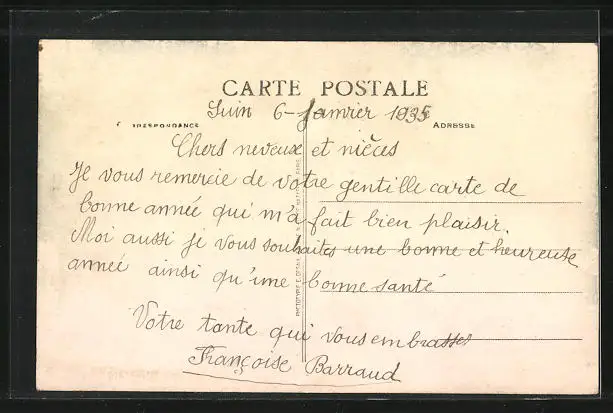 CARTE POSTALE
Suin 6 - Janvier 1935
ADRESSE
Chers neveux et nièces
Je vous remercie de votre gentille carte de
bonne année qui m'a fait bien plaisir.
Moi aussi je vous souhaites une bonne et heureuse
année ainsi qu'une bonne santé
Votre tante qui vous embrasses
Françoise Barraud